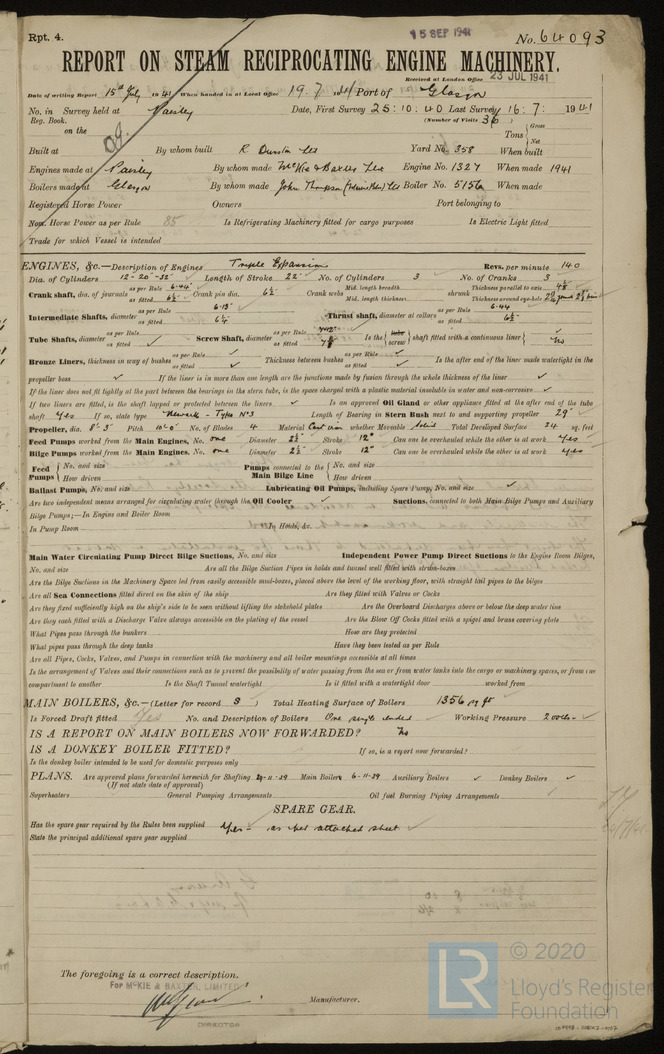 Rpt. 4.
15 SEP 1941
No. 64093
REPORT ON STEAM RECIPROCATING ENGINE MACHINERY.
Received at London Office 23 JUL 1941
Date of writing Report 15th July 1941 When handed in at Local Office 19.7.1941 Port of Glasgow
No. in Survey held at Paisley Date, First Survey 25:10:40 Last Survey 16:7: 1941
Reg. Book. (Number of Visits 36)
on the Tons { Gross Net
Built at By whom built R Dunston Ltd Yard No. 358 When built
Engines made at Paisley By whom made McKie & Baxter Ltd Engine No. 1327 When made 1941
Boilers made at Glasgow By whom made John Thompson Ltd Boiler No. 5156 When made
Registered Horse Power Owners Port belonging to
Nom. Horse Power as per Rule 85 Is Refrigerating Machinery fitted for cargo purposes Is Electric Light fitted
Trade for which Vessel is intended
ENGINES, &c.—Description of Engines Triple Expansion Revs. per minute 140
Dia. of Cylinders 12-20-32 Length of Stroke 22 No. of Cylinders 3 No. of Cranks 3
Crank shaft, dia. of journals as per Rule 6.44 as fitted 6½ Crank pin dia. 6½ Crank webs Mid. length breadth Mid. length thickness shrunk Thickness parallel to axis 4⅛ Thickness around eye-hole
Intermediate Shafts, diameter as per Rule 6.13 as fitted 6¼ Thrust shaft, diameter at collars as per Rule 6.44 as fitted 6½
Tube Shafts, diameter as per Rule as fitted Screw Shaft, diameter as per Rule as fitted Is the { tube screw } shaft fitted with a continuous liner { No
Bronze Liners, thickness in way of bushes as per Rule as fitted Thickness between bushes as per Rule as fitted Is the after end of the liner made watertight in the
propeller boss If the liner is in more than one length are the junctions made by fusion through the whole thickness of the liner
If the liner does not fit tightly at the part between the bearings in the stern tube, is the space charged with a plastic material insoluble in water and non-corrosive
If two liners are fitted, is the shaft lapped or protected between the liners Is an approved Oil Gland or other appliance fitted at the after end of the tube
shaft Yes If so, state type Newark - Type No 3 Length of Bearing in Stern Bush next to and supporting propeller 29"
Propeller, dia. 8'-3" Pitch 10'-0" No. of Blades 4 Material Cast iron whether Moveable Solid Total Developed Surface 24 sq. feet
Feed Pumps worked from the Main Engines, No. one Diameter 2½" Stroke 12" Can one be overhauled while the other is at work Yes
Bilge Pumps worked from the Main Engines, No. one Diameter 2½" Stroke 12" Can one be overhauled while the other is at work Yes
Feed Pumps { No. and size How driven Pumps connected to the Main Bilge Line { No. and size How driven
Ballast Pumps, No. and size Lubricating Oil Pumps, including Spare Pump, No. and size
Are two independent means arranged for circulating water through the Oil Cooler Suctions, connected to both Main Bilge Pumps and Auxiliary
Bilge Pumps;—In Engine and Boiler Room
In Pump Room In Holds, &c.
Main Water Circulating Pump Direct Bilge Suctions, No. and size Independent Power Pump Direct Suctions to the Engine Room Bilges,
No. and size Are all the Bilge Suction Pipes in holds and tunnel well fitted with strum-boxes
Are the Bilge Suctions in the Machinery Space led from easily accessible mud-boxes, placed above the level of the working floor, with straight tail pipes to the bilges
Are all Sea Connections fitted direct on the skin of the ship Are they fitted with Valves or Cocks
Are they fixed sufficiently high on the ship's side to be seen without lifting the stokehold plates Are the Overboard Discharges above or below the deep water line
Are they each fitted with a Discharge Valve always accessible on the plating of the vessel Are the Blow Off Cocks fitted with a spigot and brass covering plate
What Pipes pass through the bunkers How are they protected
What pipes pass through the deep tanks Have they been tested as per Rule
Are all Pipes, Cocks, Valves, and Pumps in connection with the machinery and all boiler mountings accessible at all times
Is the arrangement of Valves and their connections such as to prevent the possibility of water passing from the sea or from water tanks into the cargo or machinery spaces, or from one
compartment to another Is the Shaft Tunnel watertight Is it fitted with a watertight door worked from
MAIN BOILERS, &c.—(Letter for record S) Total Heating Surface of Boilers 1356 sq ft
Is Forced Draft fitted Yes No. and Description of Boilers One single ended Working Pressure 200 lbs
IS A REPORT ON MAIN BOILERS NOW FORWARDED? No
IS A DONKEY BOILER FITTED? If so, is a report now forwarded?
Is the donkey boiler intended to be used for domestic purposes only
PLANS. Are approved plans forwarded herewith for Shafting 29-11-39 Main Boilers 6-11-39 Auxiliary Boilers Donkey Boilers
(If not state date of approval)
Superheaters General Pumping Arrangements Oil fuel Burning Piping Arrangements
SPARE GEAR.
Has the spare gear required by the Rules been supplied Yes - as per attached sheet
State the principal additional spare gear supplied
The foregoing is a correct description.
FOR MCKIE & BAXTER, LIMITED
Manufacturer.
DIRECTOR
© 2020
LR
Lloyd's Register
Foundation